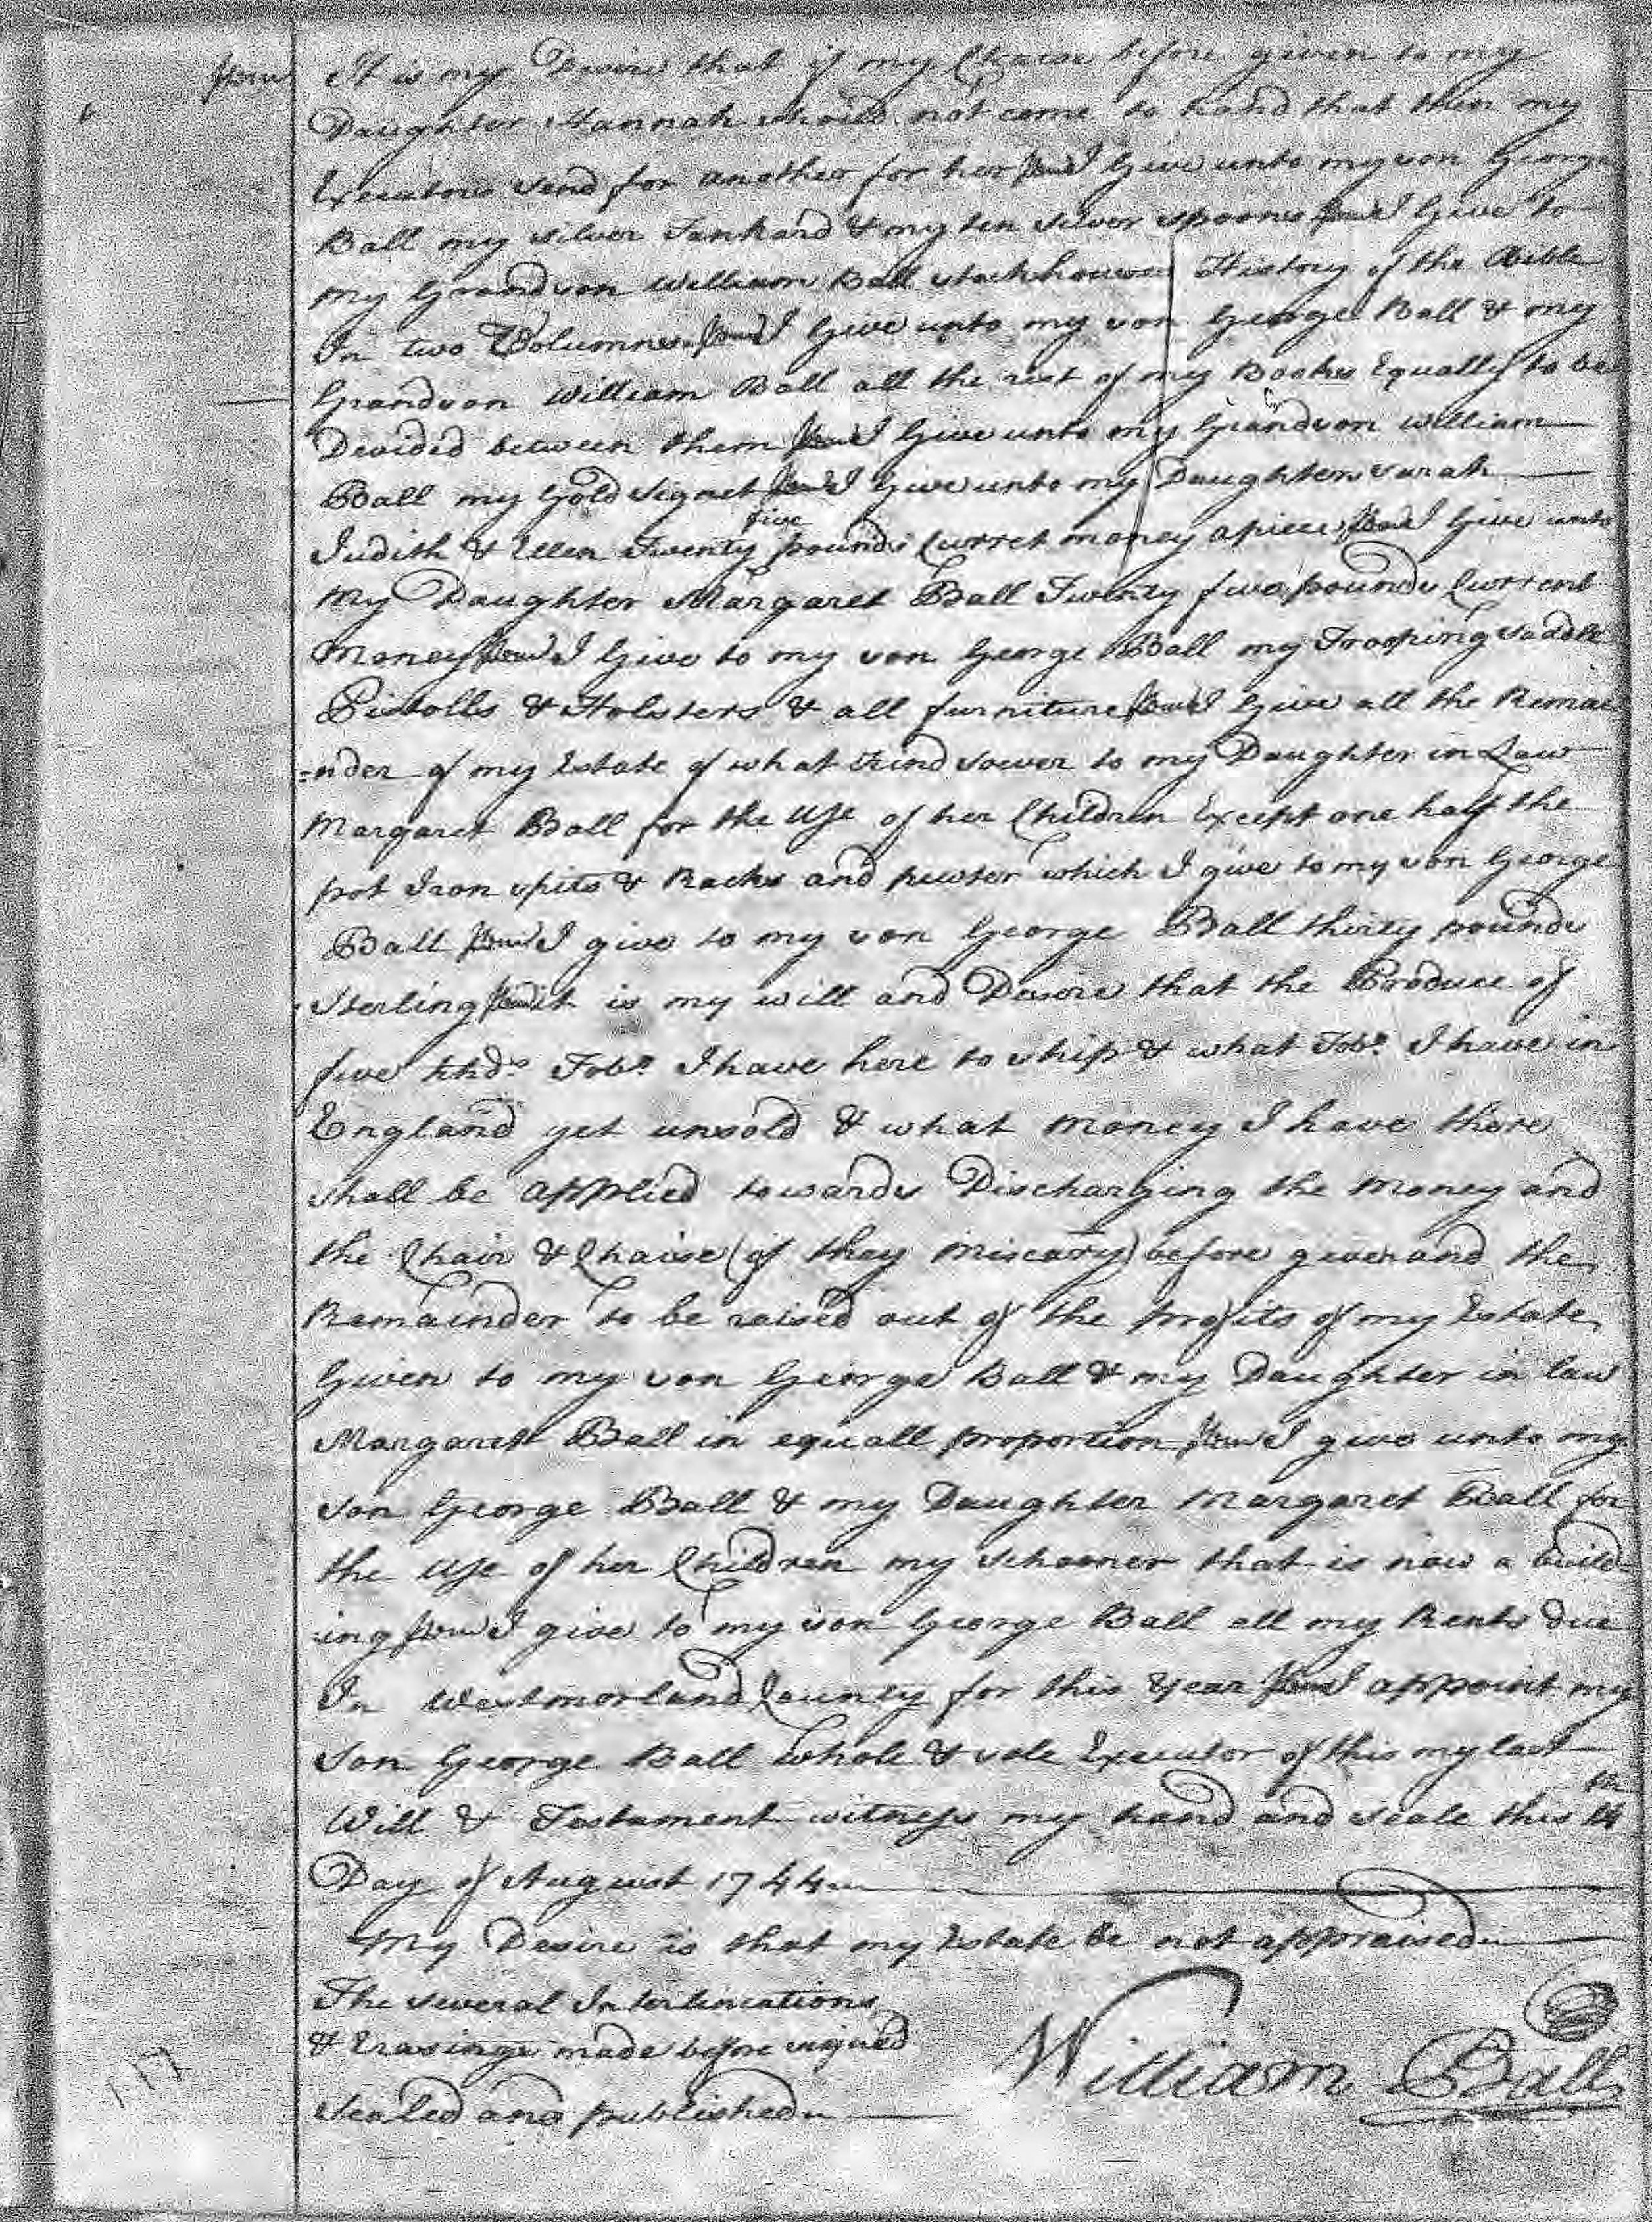 Item It is my Desire that if my Chaise before given to my
Daughter Hannah should not come to hand that then my
Executors send for another for her Item I Give unto my son George
Ball my silver Tankard & my ten silver spoons Item I Give to
my Grandson William Ball Stackhouses History of the Bible
In two Volumnes Item I Give unto my son George Ball & my
Grandson William Ball all the rest of my Books Equally to be
Devided between them Item I Give unto my Grandson William
Ball my Gold Signet Item I Give unto my Daughters Sarah
Judith & Ellen Twenty five pounds Curret money apiece Item I Give unto
my Daughter Margaret Ball Twenty five pounds Current
Money Item I Give to my son George Ball my Trooping Saddle
Pistolls & Holsters & all furniture Item I Give all the Remai
=nder of my Estate of what kind soever to my Daughter in Law
Margaret Ball for the Use of her Children Except one half the
pot Iron spits & Racks and pewter which I give to my son George
Ball Item I give to my son George Ball thirty pounds
Sterling Item it is my will and Desire that the Produce of
five hhds Tobo I have here to ship & what Tobo I have in
England yet unsold & what money I have there
shall be applied towards Discharging the money and
the Chair & Chaise (if they miscary) before given and the
Remainder to be raised out of the profits of my Estate
Given to my son George Ball & my Daughter in law
Margaret Ball in equall proportion Item I give unto my
son George Ball & my Daughter Margaret Ball for
the Use of her Children my Schooner that is now a build
=ing Item I give to my son George Ball all my Rents due
In Westmorland County for this Year Item I appoint my
Son George Ball whole & sole Executor of this my last
Will & Testament witness my hand and seale this
Day of August 1744
My Desire is that my Estate be not appraised
The several Interlineations
& Erasings made before signed
Sealed and published
William Ball
117